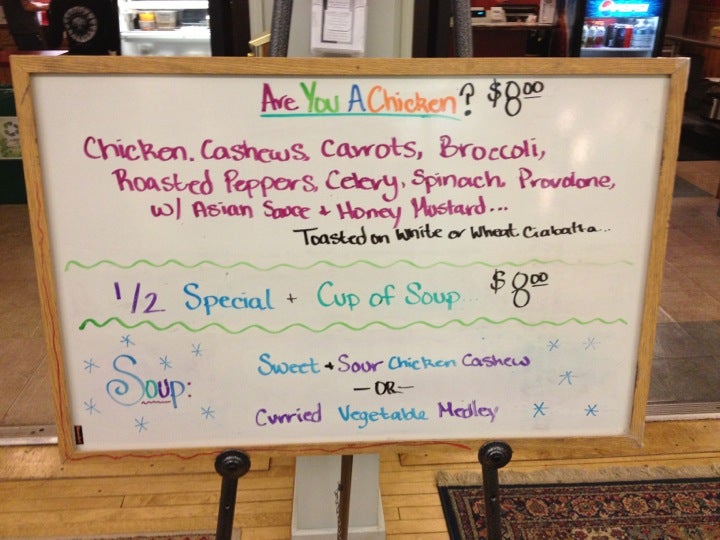 Are You A Chicken? $8.00
Chicken, Cashews, Carrots, Broccoli,
Roasted Peppers, Celery, Spinach, Provolone,
w/ Asian Sauce + Honey Mustard...
Toasted on White or Wheat Ciabatta...
1/2 Special + Cup of Soup... $8.00
Soup:
Sweet + Sour Chicken Cashew
- OR -
Curried Vegetable Medley